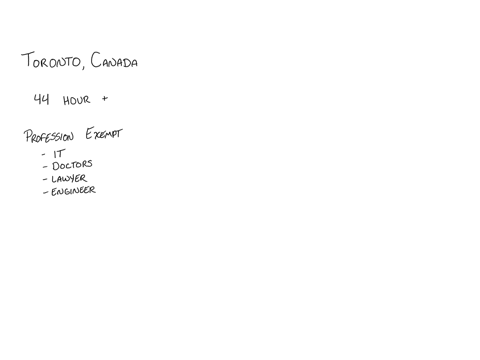 TORONTO, CANADA
44 HOUR +
PROFESSION EXEMPT
- IT
- DOCTORS
- LAWYER
- ENGINEER